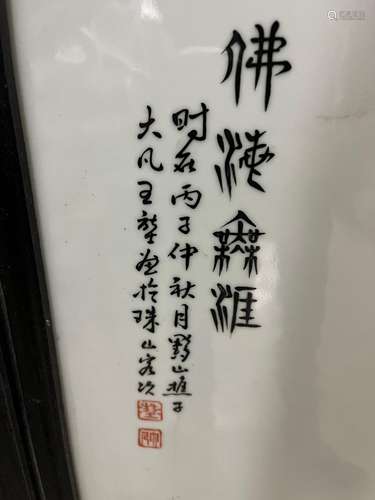 佛海無涯
时在丙子仲秋月黟山樵子
大凡王堃画於珠山客次